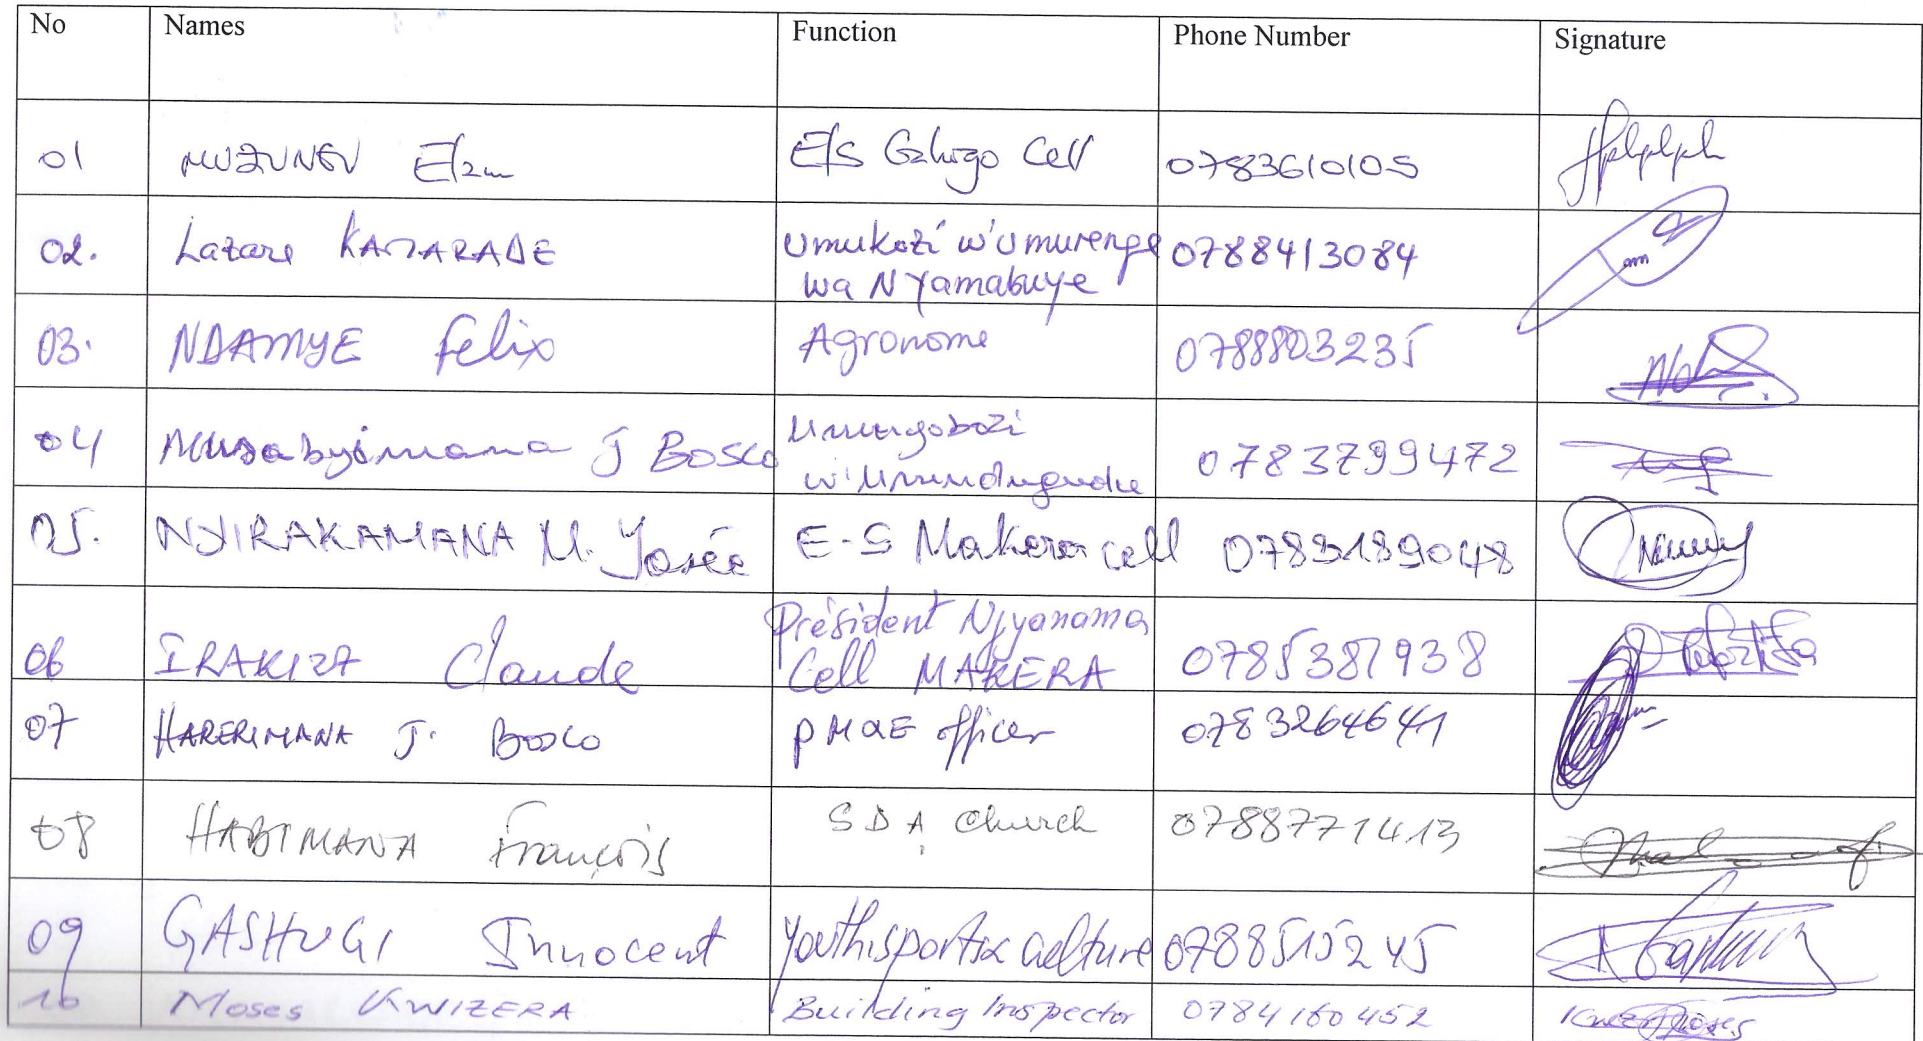 No Names Function Phone Number Signature
01 MUZUNGU E/S Gahogo Cell 0783610105
02. Lazare KAMARADE Umukozi w'Umurenge 0788413084
wa NYamabuye
03. NDAMYE Felix Agronome 0788803235
04 Musabyimana J Bosco Umuyobozi 0783799472
w'Umudugudu
05. NYIRAKAMANA M. Josée E-S Makera cell 0783189048
06 IRAKIZA Claude Président Njyanama 0785387938
Cell MAKERA
07 HARERIMANA J. Bosco PM&E officer 0783264641
08 HABIMANA François SDA Church 0788771413
09 GASHUGI Innocent Youth,sport & culture 0788515245
10 Moses KWIZERA Building Inspector 0784160452